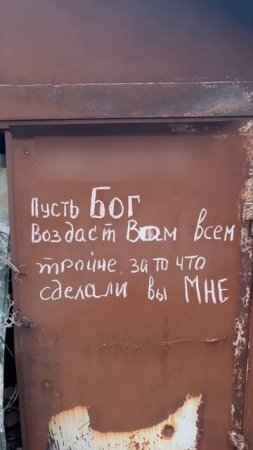 Пусть Бог
Воздаст Вам всем
тройне, за то что
сделали вы МНЕ